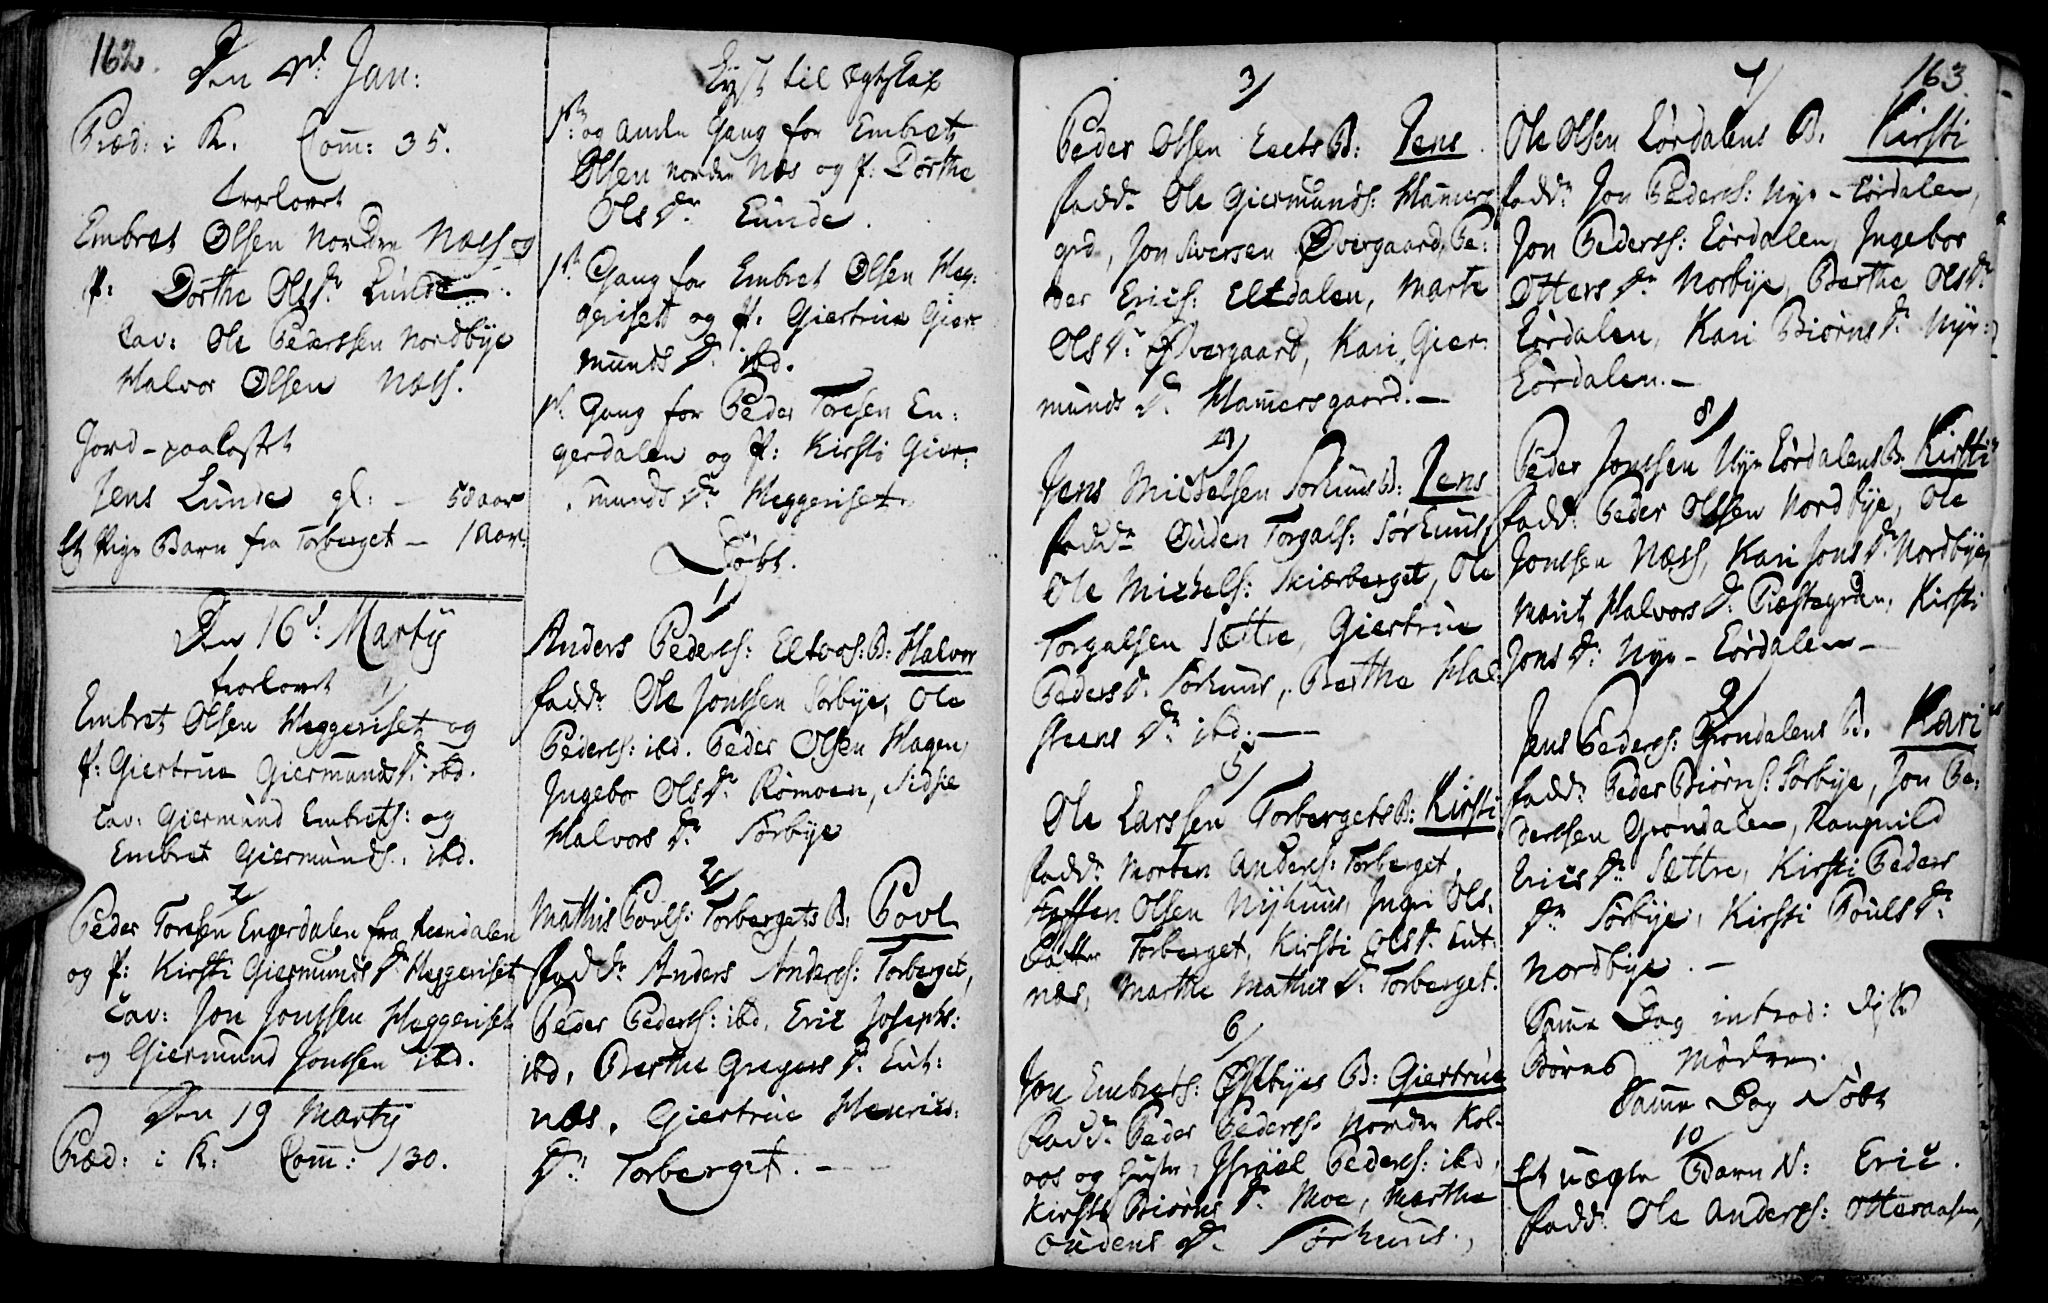 162.
Den 4d: Jan:
Præd: i K. Com: 35.
trolovet
Embret Olsen Nordre Næss og
P: Dorthe Olsdr Lunde.
Cav: Ole Pederssen Nordbÿe
Halvor Olsen Næss.
Jord-paakastet
Jens Lunde gl: - 58 aar
Et Pige Barn fra Torberget - 1 Aar.
Den 16d: Martÿ
trolovet
1/
Embret Olsen Heggeriset og
P: Giertrue Giermunds Dr ibd.
Cav: Giermund Embrets: og
Embret Giermunds. ibd.
2/
Peder Toresen Engerdalen fra Rendalen
og P: Kirsti Giermunds Dr Heggeriset
Cav: Jon Jonssen Heggeriset
og Giermund Jonssen ibd.
Den 19 Martÿ
Præd: i K: Com: 130.
Lÿst til Egteskab
1st og anden Gang for Embret
Olsen Nordre Næs og P: Dorthe
Ols Dr Lunde.
1st Gang for Embret Olsen Heg:
geriset og P: Giertrue Gier
munds Dr ibd.
1st: Gang for Peder Toresen En:
gerdalen og P: Kirsti Gier:
munds Dr Heggeriset.
Døbt.
1/
Anders Peders: Eltvos: B: Halvor
fadd: Ole Jonssen Sørbÿe, Ole
Peders: ibd. Peder Olsen Hagen,
Ingebor Ols Dr Rømoen, Sidsie
Halvors Dr Sörbÿe
2/
Mathis Povls: Torbergets B: Povl
fadd: Anders Anders: Torberget,
Peder Peders: ibd, Eric Josephs:
ibd, Berthe Gregers Dr. Lut:
næs, Giertrue Henrics:
Dr Torberget. -
3/
Peder Olsen Eltets B: Jens.
fadd: Ole Giermunds: Hamers
grd, Jon Iversen Øvergaard, Pe:
der Erics: Eltdalen, Marte
Ols Dr. Øvergaard, Kari Gier:
munds Dr. Hamersgaard. -
4/
Jens Michelsen Sørhuus B: Jens
fadd: Ouden Torgals: Sørhuus,
Ole Michels: Skiærberget, Ole
Torgalsen Sættre, Giertrue
Peders Dr. Sørhuus, Berthe Hal
steens Dr ibd. -
5/
Ole Larssen Torbergets B: Kirsti
fadd: Morten Anders: Torberget,
Steffen Olsen Nÿhuus, Ingri Ols,
Datter Torberget, Kirsti Ols Dr. Lut:
næs, Marthe Mathis Dr. Torberget.
6/
Jon Embrets: Østbÿes B: Giertrue
fadd: Peder Peders: Nordre Kol-
oos og Hustr, Israel Peders: ibd,
Kirsti Biørns Dr. Moe, Marthe
Oudens Dr. Sørhuus.,
163.
7/
Ole Olsen Lördalens B. Kirsti
fadd: Jon Peders: Nÿe-Lördalen,
Jon Peders: Lördalen, Ingebor
Otters Dr Norbÿe, Berthe Ols Dr
Lördalen, Kari Biørns Dr. Nÿe:
Lördalen. -
8/
Peder Jonssen Nÿe Lördalens B. Kirsti
fadd: Peder Olssen Nordbÿe, Ole
Jonssen Næss, Kari Jons Dr Nordbÿe,
Marit Halvors Dr. Præstegrden, Kirsti
Jons Dr: Nÿe-Lördalen -
9/
Jens Peders: Grøndalens B. Kari
fadd: Peder Biørns: Sörbÿe, Jon Pe:
derssen Grøndalen, Rangnild
Erics Dr. Sættre, Kirsti Peders
Dr Sörbÿe, Kirsti Pouls Dr
Nordbÿe. -
Samme Dag introd: disse
Børns Mødre.
Samme Dag Döbt
10/
Et uægte Barn N: Eric.
fadd: Ole Anders: Otteraasen,